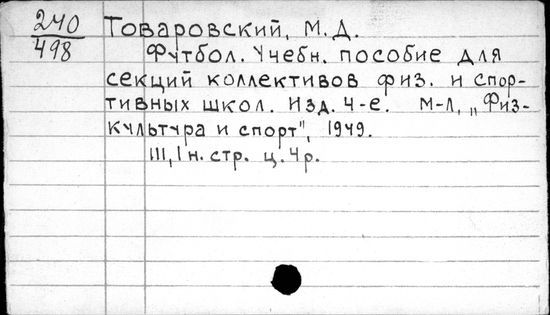 240
498
Товаровский, М. Д.
Футбол. Учебн. пособие для
секций коллективов физ. и спор-
тивных школ. Изд. 4-е. М-Л, „Физ-
культура и спорт", 1949.
111, 1 н. стр. ц. 4 р.